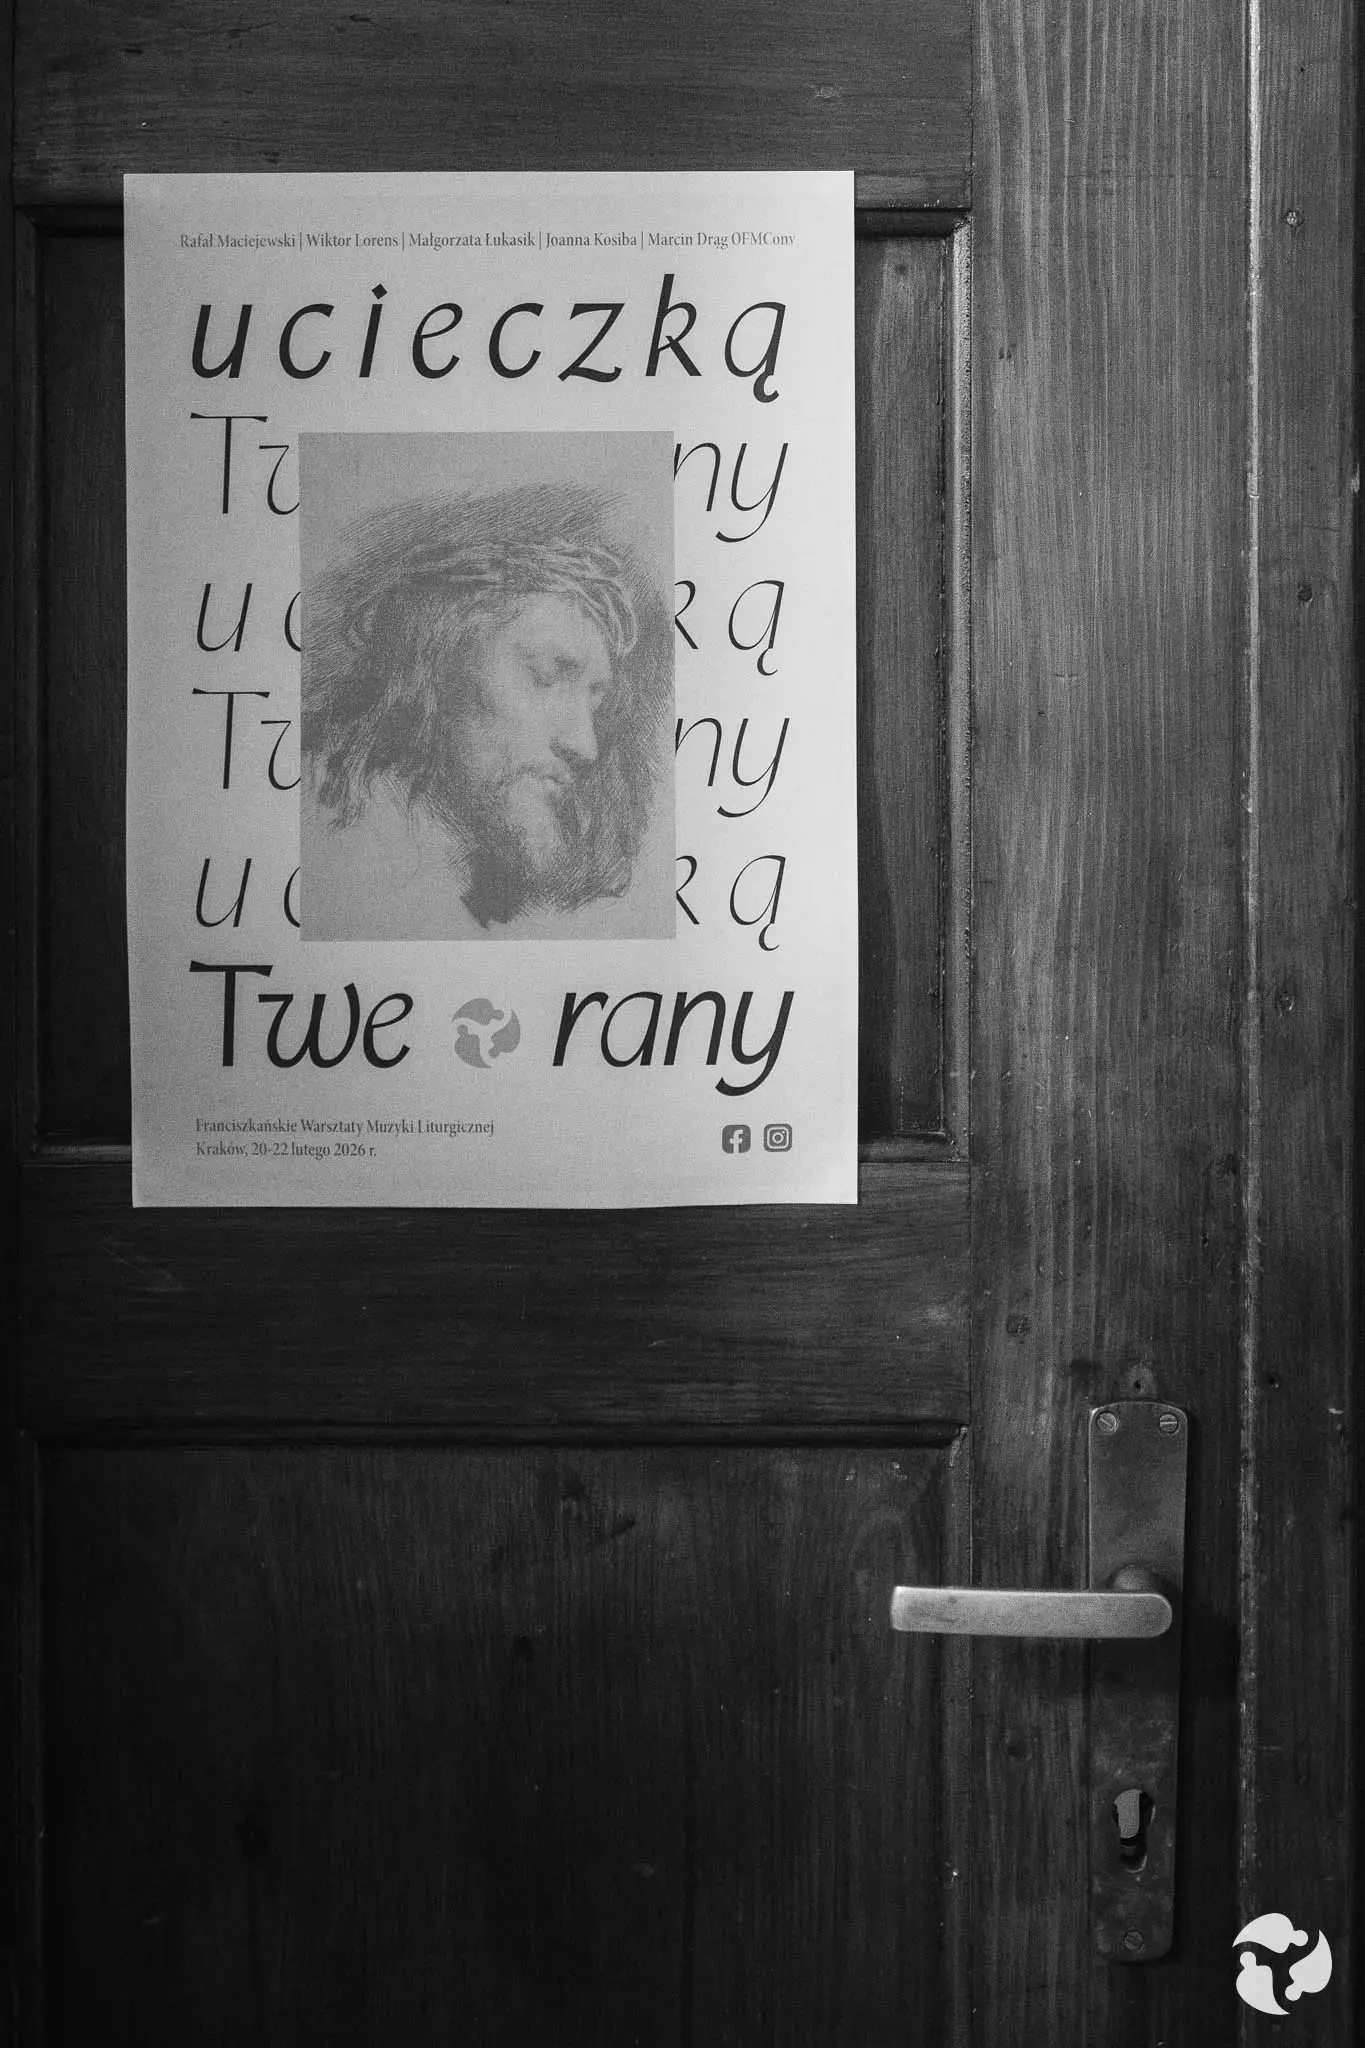 Rafał Maciejewski | Wiktor Lorens | Małgorzata Łukasik | Joanna Kosiba | Marcin Drąg OFMConv
ucieczką
Tw ny
uc ką
Tw ny
uc ką
Twe rany
Franciszkańskie Warsztaty Muzyki Liturgicznej
Kraków, 20-22 lutego 2026 r.